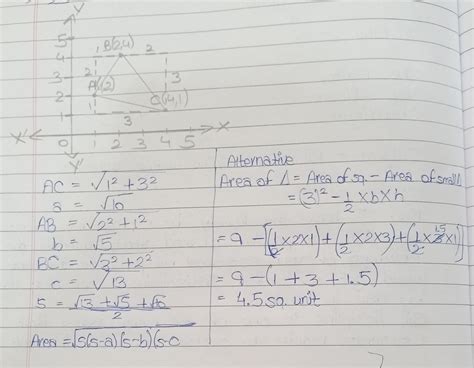 Y
5
4
3
2
1
B(2,4)
2
2
A(1,2)
3
C(4,1)
3
X'
0
1 2 3 4 5
X
Y'
AC = √1² + 3²
a = √10
AB = √2² + 1²
b = √5
BC = √3² + 2²
c = √13
S = √13 + √5 + √10
2
Area = √s(s-a)(s-b)(s-c
Alternative
Area of Δ = Area of sq. - Area of small Δ
= (3)² - 1/2 × b × h
= 9 - [(1/2 × 2 × 1) + (1/2 × 2 × 3) + (1/2 × 3 × 1)]
1.5
= 9 - (1 + 3 + 1.5)
= 4.5 sq. unit